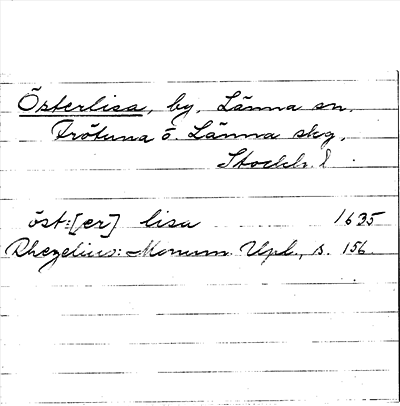 Österlisa, by, Länna sn.
Frötuna o. Länna skg,
Stockh. l
öst=[er] lisa 1635
Rhezelius: Monum. Upl., s. 156.